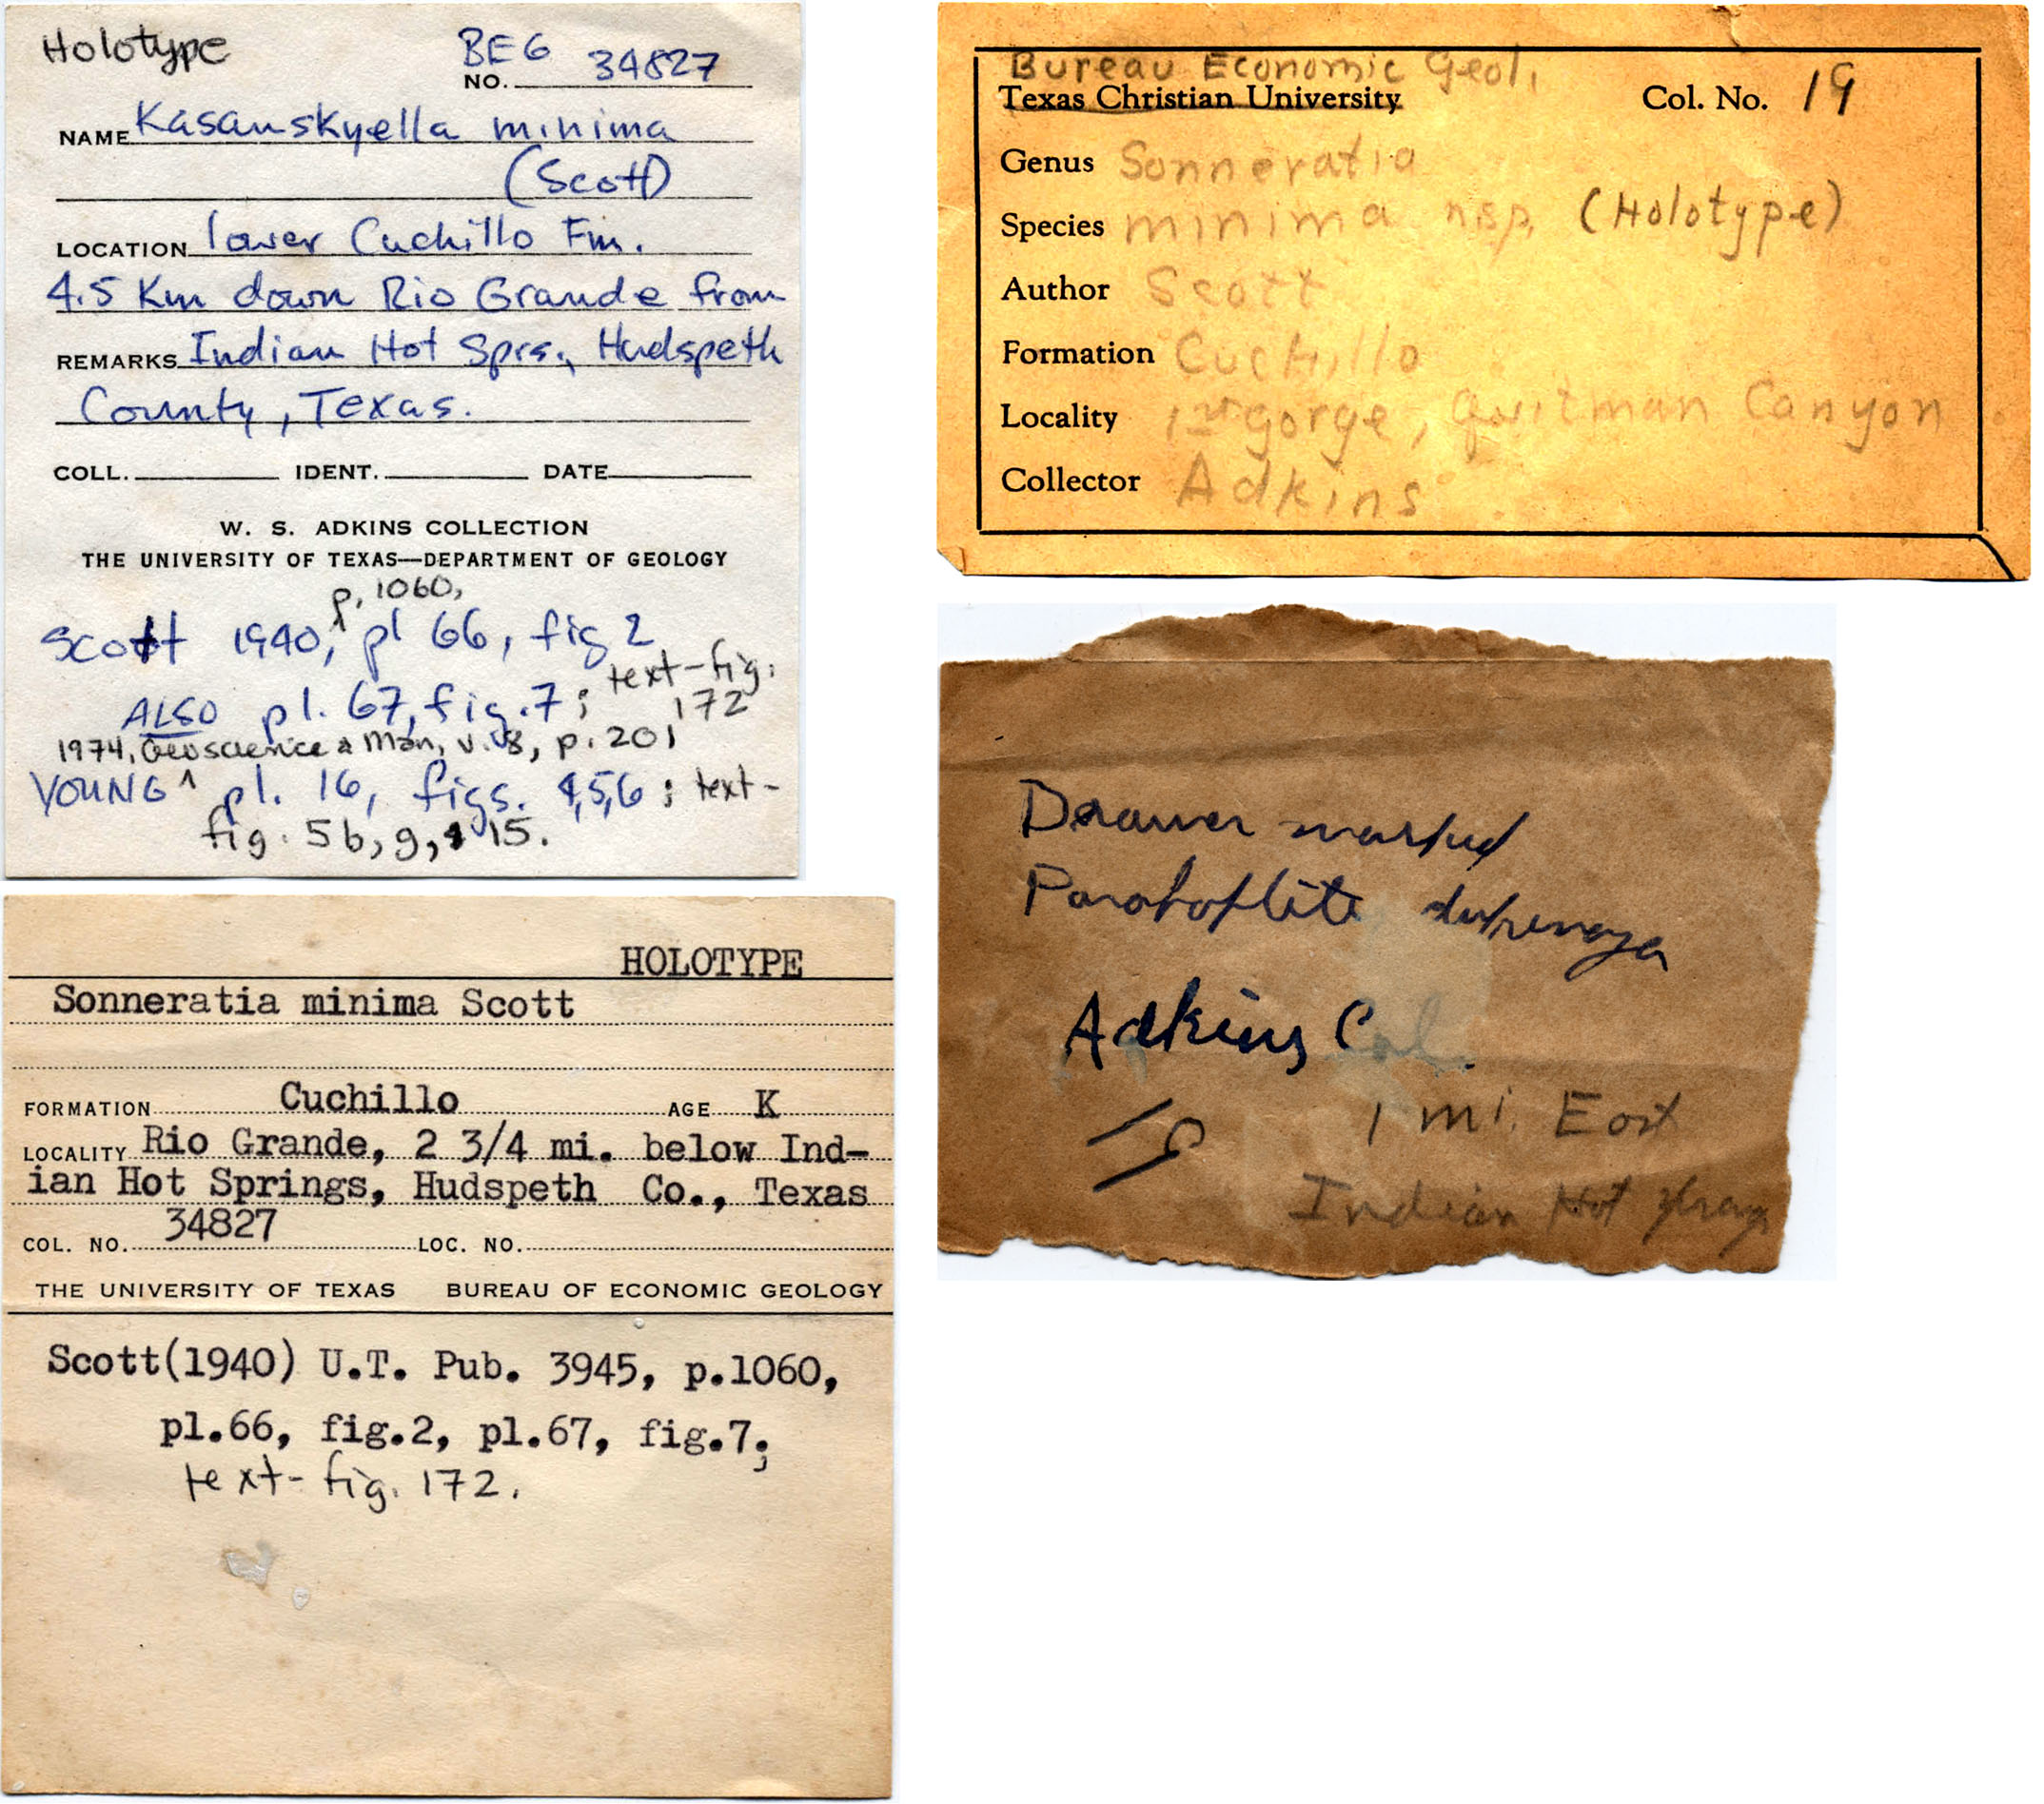 Holotype
BEG
NO. 34827
NAME Kasanskyella minima
(Scott)
LOCATION lower Cuchillo Fm.
4.5 Km down Rio Grande from
REMARKS Indian Hot Sprs., Hudspeth
County, Texas.
COLL. IDENT. DATE
W. S. ADKINS COLLECTION
THE UNIVERSITY OF TEXAS—DEPARTMENT OF GEOLOGY
p. 1060,
Scott 1940, pl 66, fig 2
ALSO pl. 67, fig. 7; text-fig. 172
1974, Geoscience & Man, v. 8, p. 201
YOUNG ^ pl. 16, figs. 4,5,6; text-
fig. 5b, g, & 15.
HOLOTYPE
Sonneratia minima Scott
FORMATION Cuchillo AGE K
LOCALITY Rio Grande, 2 3/4 mi. below Ind-
ian Hot Springs, Hudspeth Co., Texas
COL. NO. 34827 LOC. NO.
THE UNIVERSITY OF TEXAS BUREAU OF ECONOMIC GEOLOGY
Scott(1940) U.T. Pub. 3945, p.1060,
pl.66, fig.2, pl.67, fig.7;
text-fig. 172.
Bureau Economic Geol.
Texas Christian University Col. No. 19
Genus Sonneratia
Species minima nsp. (Holotype)
Author Scott
Formation Cuchillo
Locality 1st gorge, Quitman Canyon
Collector Adkins
Drawer marked
Parahoplite
Adkins Col.
19 1 mi. East
Indian Hot